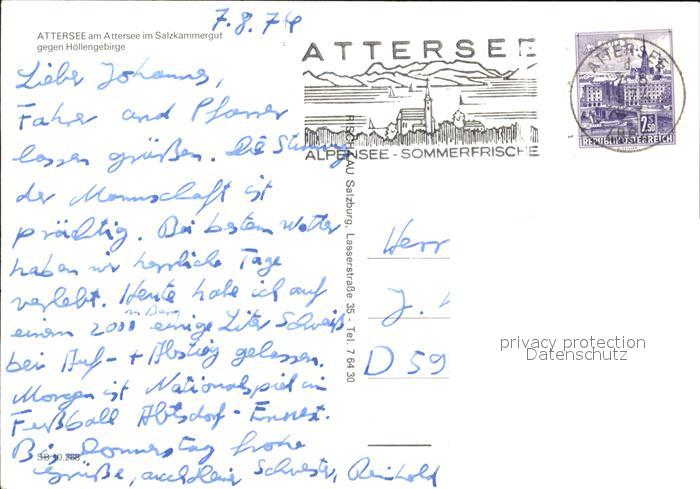 7.8.74
ATTERSEE am Attersee im Salzkammergut
gegen Höllengebirge
Lieber Johannes,
Fahrer und Pfarrer
lassen grüßen. Die Stimmung
der Mannschaft ist
prächtig. Bei bestem Wetter
haben wir herrliche Tage
verlebt. Heute habe ich auf
einem 2000 m Berg einige Liter Schweiß
bei Auf- + Abstieg gelassen.
Morgen ist Nationalspiel im
Fußball Abtsdorf -
Bis Donnerstag frohe
Grüße, auch Deine Schwester, Reinhold
SB 10.268
ATTERSEE
ALPENSEE - SOMMERFRISCHE
ATTERSEE
2.50
REPUBLIK ÖSTERREICH
AU Salzburg, Lasserstraße 35 - Tel. 7 64 30
Herr
J.
D 59
privacy protection
Datenschutz